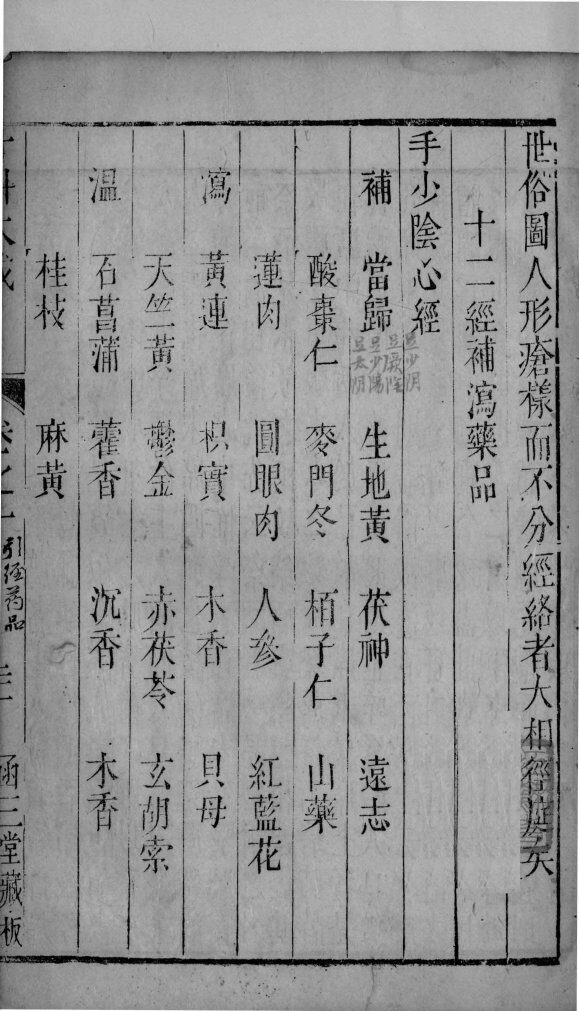 世俗圖人形瘡樣而不分經絡者大相徑庭矣
十二經補瀉藥品
手少陰心經
補 當歸 生地黃 茯神 遠志
酸棗仁 麥門冬 栢子仁 山藥
蓮肉 圓眼肉 人參 紅藍花
瀉 黃連 枳實 木香 貝母
天竺黃 鬱金 赤茯苓 玄胡索
溫 石菖蒲 藿香 沉香 木香
桂枝 麻黃
引經药品
涵三堂藏板